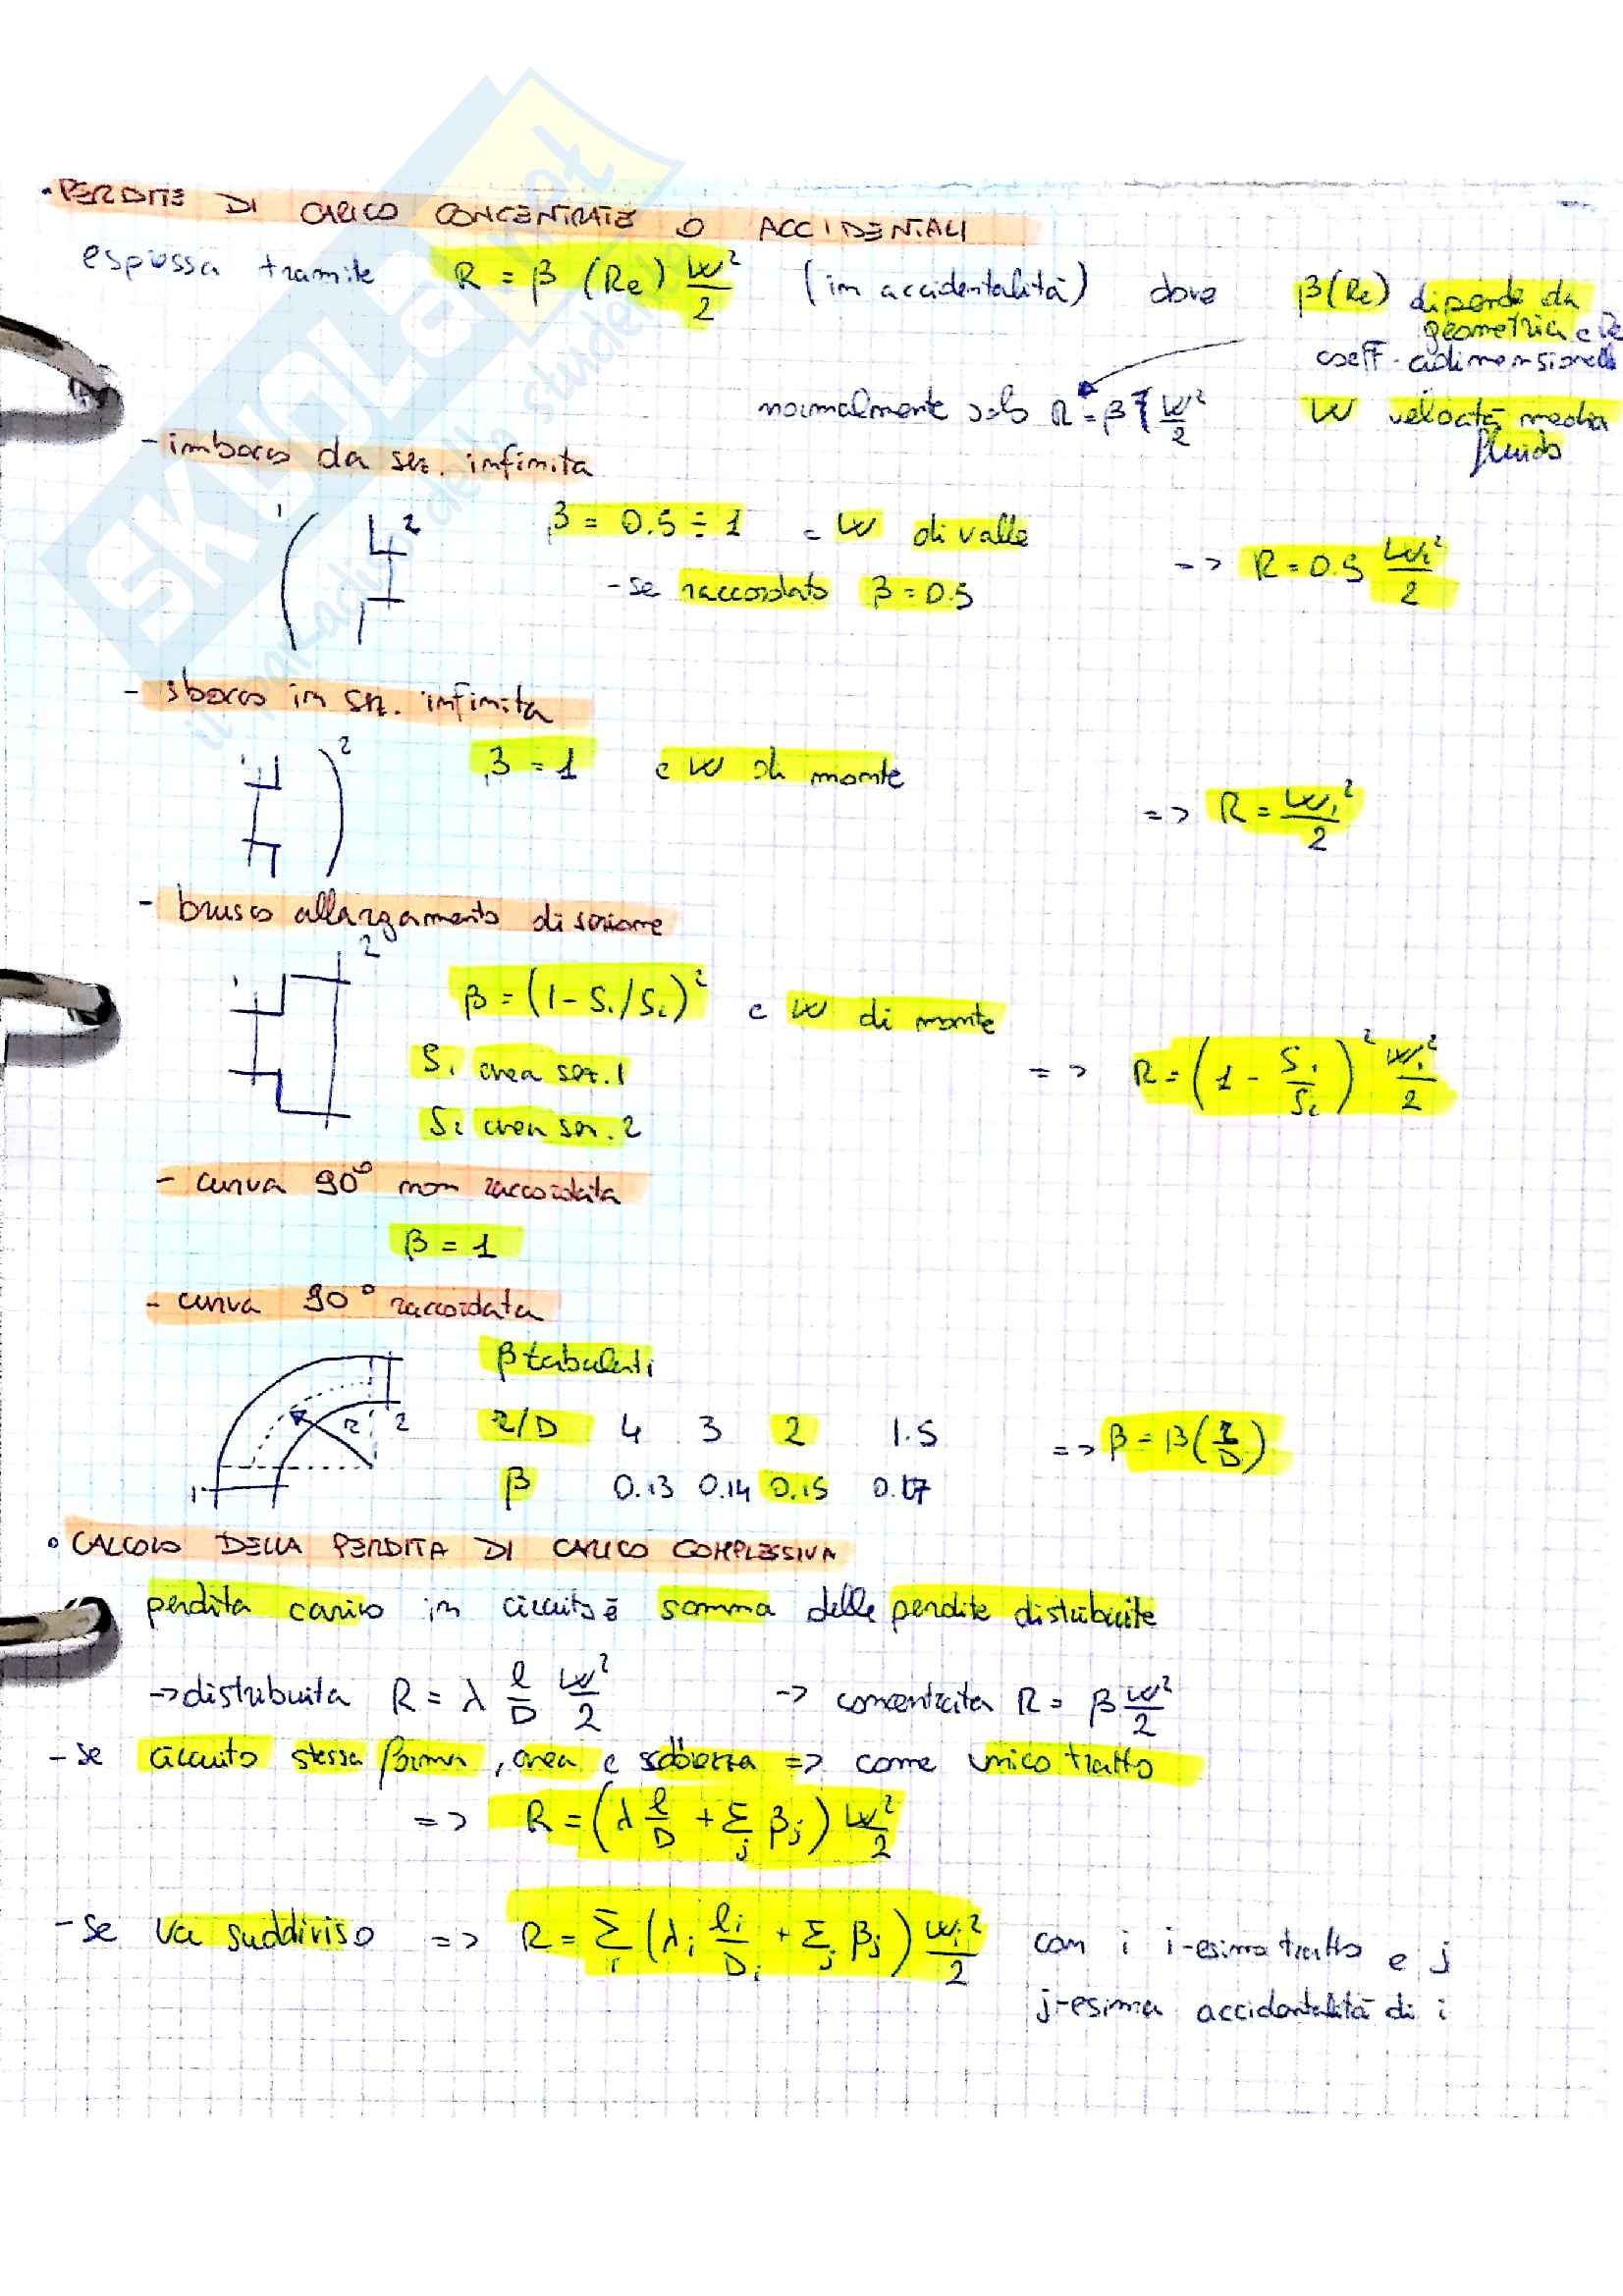 • PERDITE DI CARICO CONCENTRATE O ACCIDENTALI
espressa tramite R = β (Re) w²/2 (in accidentalità) dove β(Re) dipende da
geometria e Re
coeff. adimensionale
normalmente solo R = β w²/2 w velocità media
fluido
- imbocco da sez. infinita
1 2 β = 0.5 ÷ 1 e w di valle
- se raccordato β = 0.5 => R = 0.5 w₂²/2
- sbocco in sez. infinita
1 2 β = 1 e w di monte
=> R = w₁²/2
- brusco allargamento di sezione
1 2 β = (1 - S₁/S₂)² e w di monte
S₁ area sez. 1 => R = (1 - S₁/S₂)² w₁²/2
S₂ area sez. 2
- curva 90° non raccordata
β = 1
- curva 90° raccordata
β tabulati
r 2 r/D 4 3 2 1.5 => β = β(r/D)
1 β 0.13 0.14 0.15 0.17
• CALCOLO DELLA PERDITA DI CARICO COMPLESSIVA
perdita carico in circuito è somma delle perdite distribuite
-> distribuita R = λ l/D w²/2 -> concentrata R = β w²/2
- se circuito stessa forma, area e scabrezza => come unico tratto
=> R = (λ l/D + Σj βj) w²/2
- se va suddiviso => R = Σi (λi li/Di + Σj βj) wi²/2 con i i-esimo tratto e j
j-esima accidentalità di i
SKUOLA.net
il portale dello studente